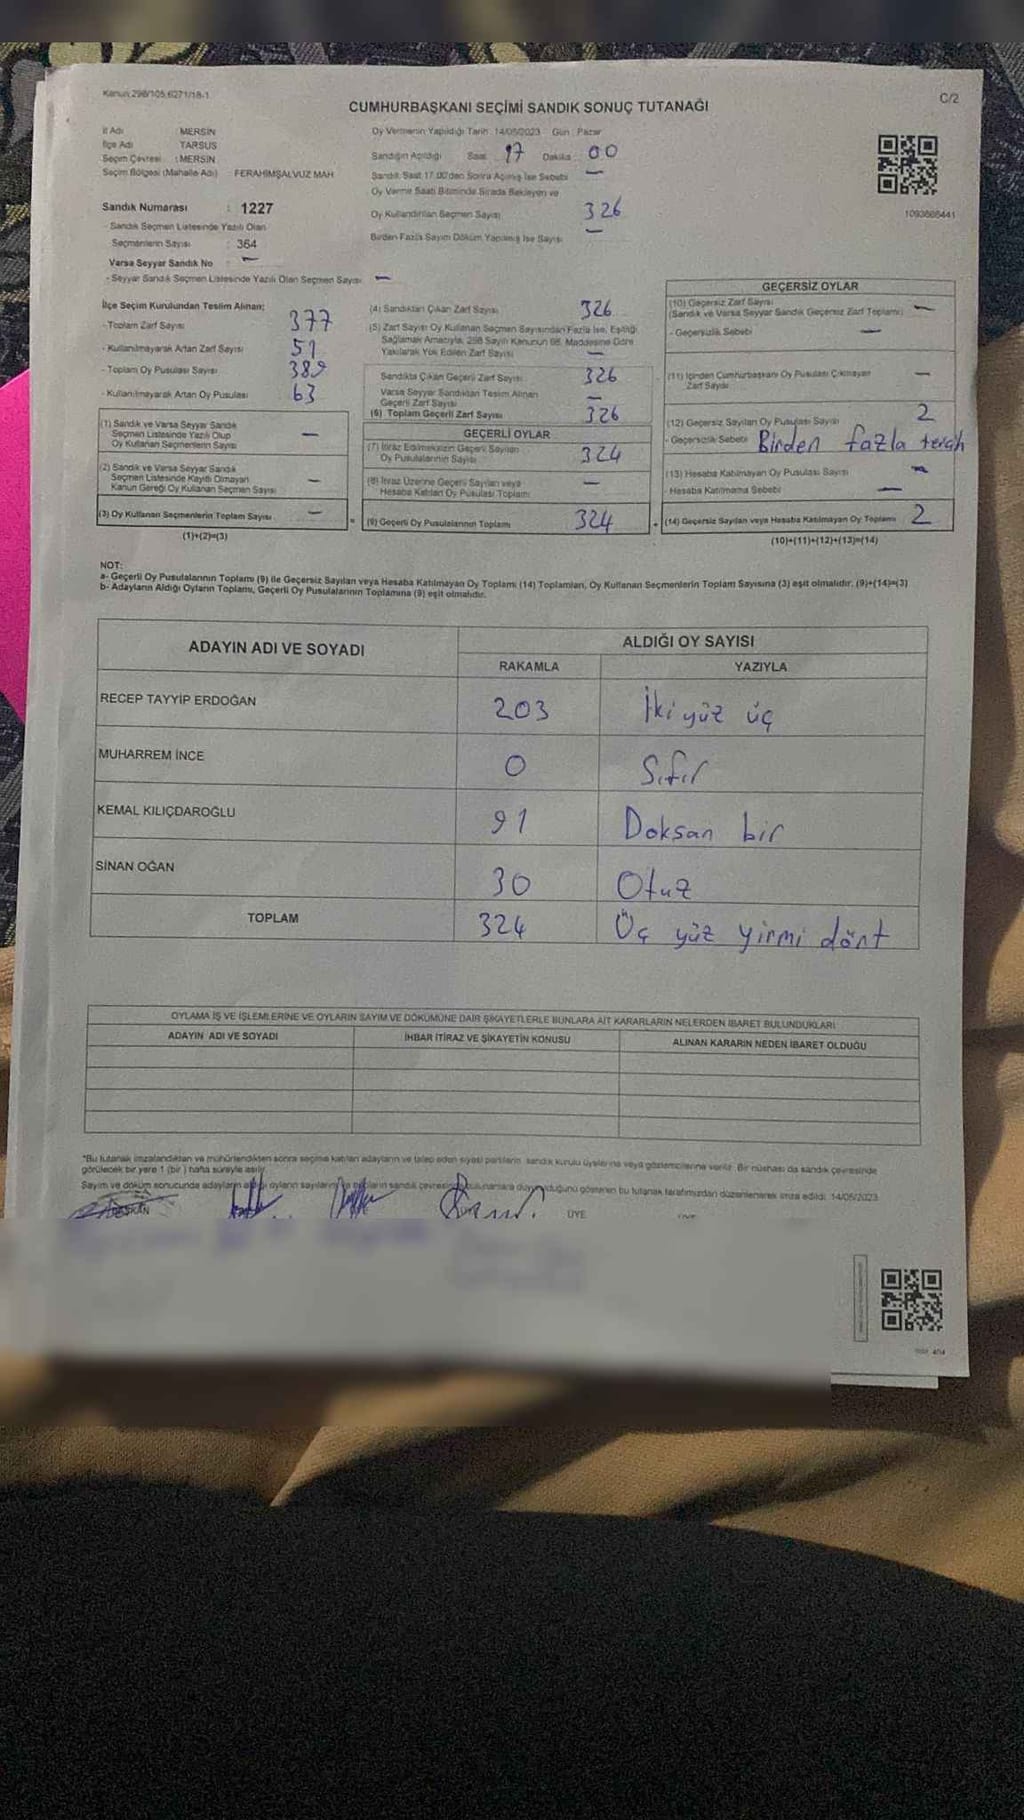 Kanun:298/105,6271/18-1
C/2
CUMHURBAŞKANI SEÇİMİ SANDIK SONUÇ TUTANAĞI
İl Adı : MERSİN
İlçe Adı : TARSUS
Seçim Çevresi : MERSİN
Seçim Bölgesi (Mahalle Adı) FERAHİMŞALVUZ MAH.
Sandık Numarası : 1227
- Sandık Seçmen Listesinde Yazılı Olan
Seçmenlerin Sayısı : 364
Varsa Seyyar Sandık No —
- Seyyar Sandık Seçmen Listesinde Yazılı Olan Seçmen Sayısı —
Oy Vermenin Yapıldığı Tarih :14/05/2023 Gün : Pazar
Sandığın Açıldığı Saat : 17 Dakika : 00
Sandık Saat 17:00'den Sonra Açılmış İse Sebebi —
Oy Verme Saati Bitiminde Sırada Bekleyen ve
Oy Kullandırılan Seçmen Sayısı 326
Birden Fazla Sayım Döküm Yapılmış İse Sayısı —
1093666441
İlçe Seçim Kurulundan Teslim Alınan;
- Toplam Zarf Sayısı 377
- Kullanılmayarak Artan Zarf Sayısı 51
- Toplam Oy Pusulası Sayısı 389
- Kullanılmayarak Artan Oy Pusulası 63
(1) Sandık ve Varsa Seyyar Sandık
Seçmen Listesinde Yazılı Olup
Oy Kullanan Seçmenlerin Sayısı —
(2) Sandık ve Varsa Seyyar Sandık
Seçmen Listesinde Kayıtlı Olmayan
Kanun Gereği Oy Kullanan Seçmen Sayısı —
(3) Oy Kullanan Seçmenlerin Toplam Sayısı —
(1)+(2)=(3)
(4) Sandıktan Çıkan Zarf Sayısı 326
(5) Zarf Sayısı Oy Kullanan Seçmen Sayısından Fazla İse, Eşitliği
Sağlamak Amacıyla, 298 Sayılı Kanunun 98. Maddesine Göre
Yakılarak Yok Edilen Zarf Sayısı —
Sandıkta Çıkan Geçerli Zarf Sayısı 326
Varsa Seyyar Sandıktan Teslim Alınan
Geçerli Zarf Sayısı —
(6) Toplam Geçerli Zarf Sayısı 326
GEÇERLİ OYLAR
(7) İtiraz Edilmeksizin Geçerli Sayılan
Oy Pusulalarının Sayısı 324
(8) İtiraz Üzerine Geçerli Sayılan veya
Hesaba Katılan Oy Pusulası Toplamı —
= (9) Geçerli Oy Pusulalarının Toplamı 324
GEÇERSİZ OYLAR
(10) Geçersiz Zarf Sayısı
(Sandık ve Varsa Seyyar Sandık Geçersiz Zarf Toplamı) —
- Geçersizlik Sebebi —
(11) İçinden Cumhurbaşkanı Oy Pusulası Çıkmayan
Zarf Sayısı —
(12) Geçersiz Sayılan Oy Pusulası Sayısı 2
- Geçersizlik Sebebi Birden fazla tercih
(13) Hesaba Katılmayan Oy Pusulası Sayısı —
- Hesaba Katılmama Sebebi —
+ (14) Geçersiz Sayılan veya Hesaba Katılmayan Oy Toplamı 2
(10)+(11)+(12)+(13)=(14)
NOT:
a- Geçerli Oy Pusulalarının Toplamı (9) ile Geçersiz Sayılan veya Hesaba Katılmayan Oy Toplamı (14) Toplamları, Oy Kullanan Seçmenlerin Toplam Sayısına (3) eşit olmalıdır. (9)+(14)=(3)
b- Adayların Aldığı Oyların Toplamı, Geçerli Oy Pusulalarının Toplamına (9) eşit olmalıdır.
ADAYIN ADI VE SOYADI
ALDIĞI OY SAYISI
RAKAMLA YAZIYLA
RECEP TAYYİP ERDOĞAN 203 İki yüz üç
MUHARREM İNCE 0 Sıfır
KEMAL KILIÇDAROĞLU 91 Doksan bir
SİNAN OĞAN 30 Otuz
TOPLAM 324 Üç yüz yirmi dört
OYLAMA İŞ VE İŞLEMLERİNE VE OYLARIN SAYIM VE DÖKÜMÜNE DAİR ŞİKAYETLERLE BUNLARA AİT KARARLARIN NELERDEN İBARET BULUNDUKLARI
ADAYIN ADI VE SOYADI İHBAR İTİRAZ VE ŞİKAYETİN KONUSU ALINAN KARARIN NEDEN İBARET OLDUĞU
*Bu tutanak imzalandıktan ve mühürlendikten sonra seçime katılan adayların ve talep eden siyasi partilerin sandık kurulu üyelerine veya gözlemcilerine verilir. Bir nüshası da sandık çevresinde
görülecek bir yere 1 (bir) hafta süreyle asılır.
Sayım ve döküm sonucunda adayların aldığı oyların sayılarını ve sandık çevresinde bulunanlara duyurulduğunu gösteren bu tutanak tarafımızdan düzenlenerek imza edildi. 14/05/2023
BAŞKAN ÜYE ÜYE